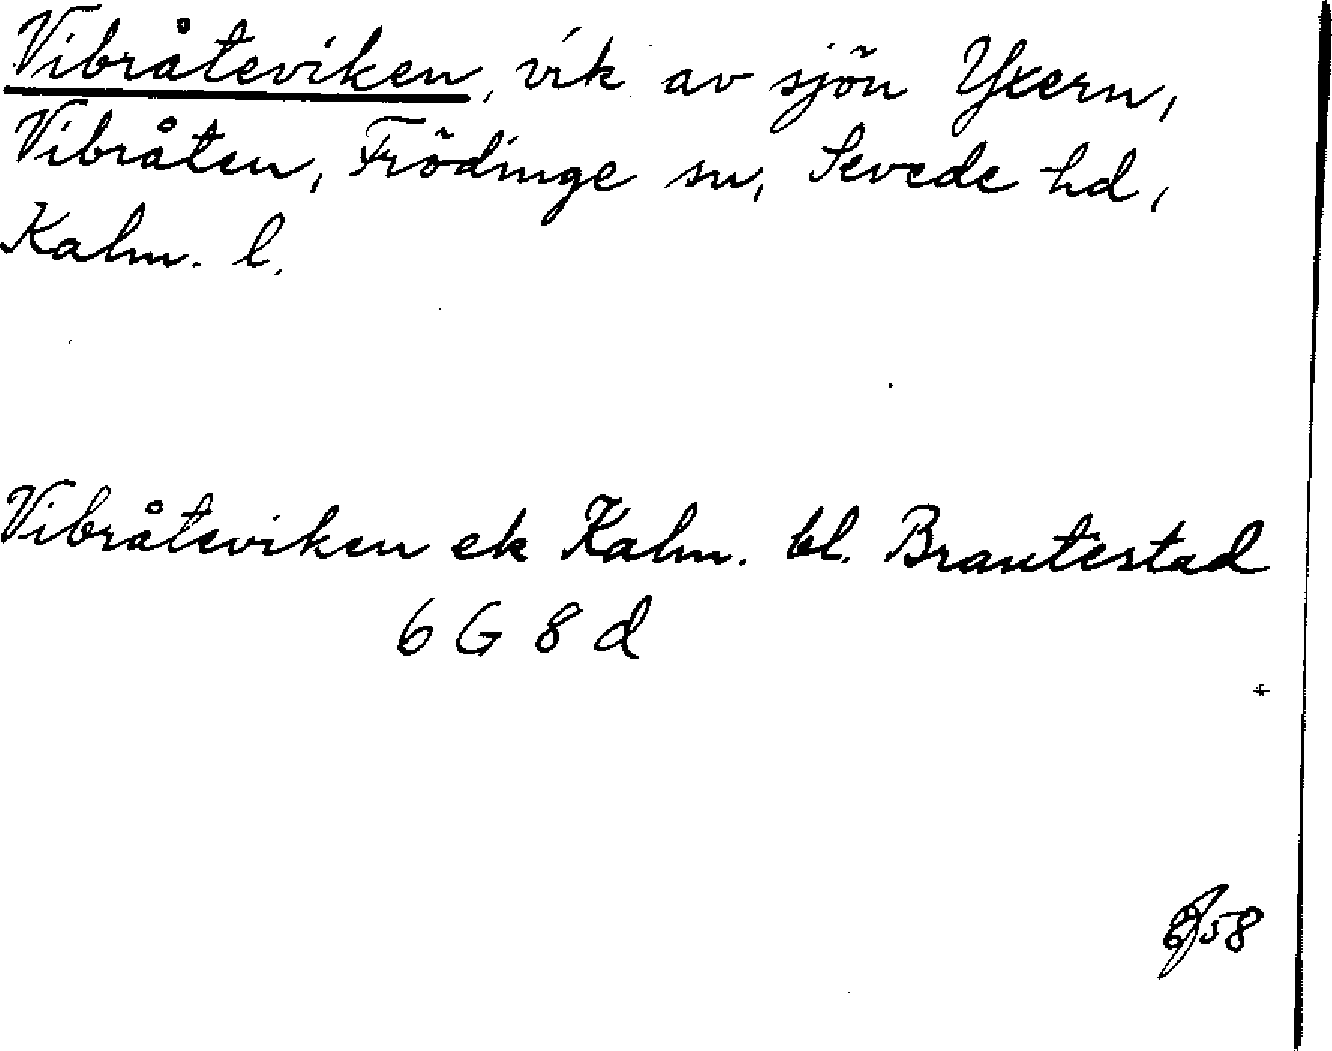 Vibråteviken, vik av sjön Yxern,
Vibråten, Frödinge sn, Sevede hd,
Kalm. l.
Vibråteviken ek Kalm. bl. Brantestad
6 G 8 d
58